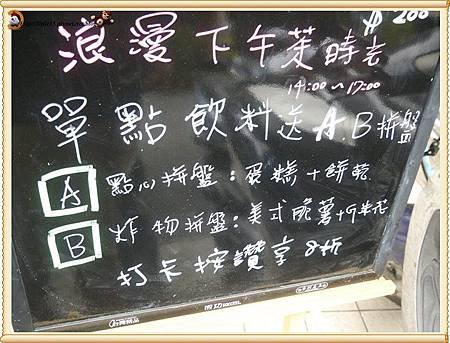 $ 200
浪漫下午茶時光
14:00~17:00
單點飲料送A.B拼盤
A 點心拼盤:蛋糕+餅乾
B 炸物拼盤:美式脆薯+
打卡按讚享8折
成功